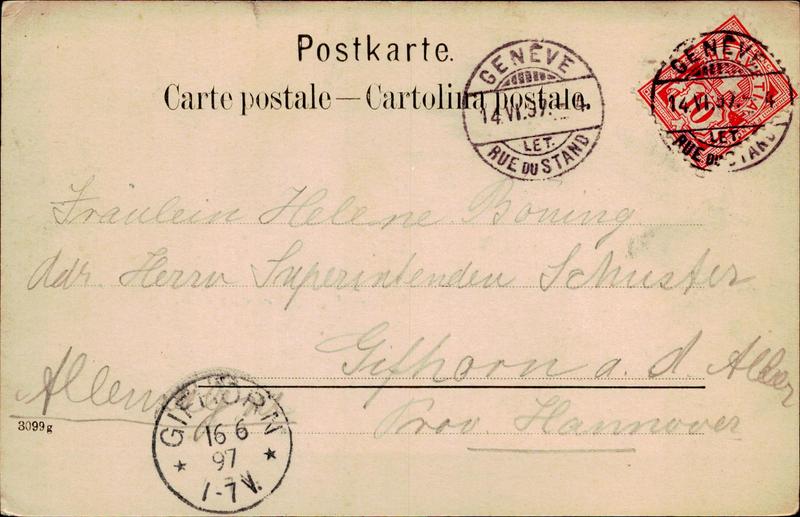 Postkarte.
Carte postale — Cartolina postale.
GENÈVE
14.VI.97. - 4
LET.
RUE DU STAND
GENÈVE
14.VI.97. - 4
LET.
RUE DU STAND
10
Fräulein Helene Böning
adr. Herrn Superintenden Schuster
Gifhorn a. d. Aller
Prov. Hannover
Allemagne
GIFHORN
16 6
97
7V.
3099g